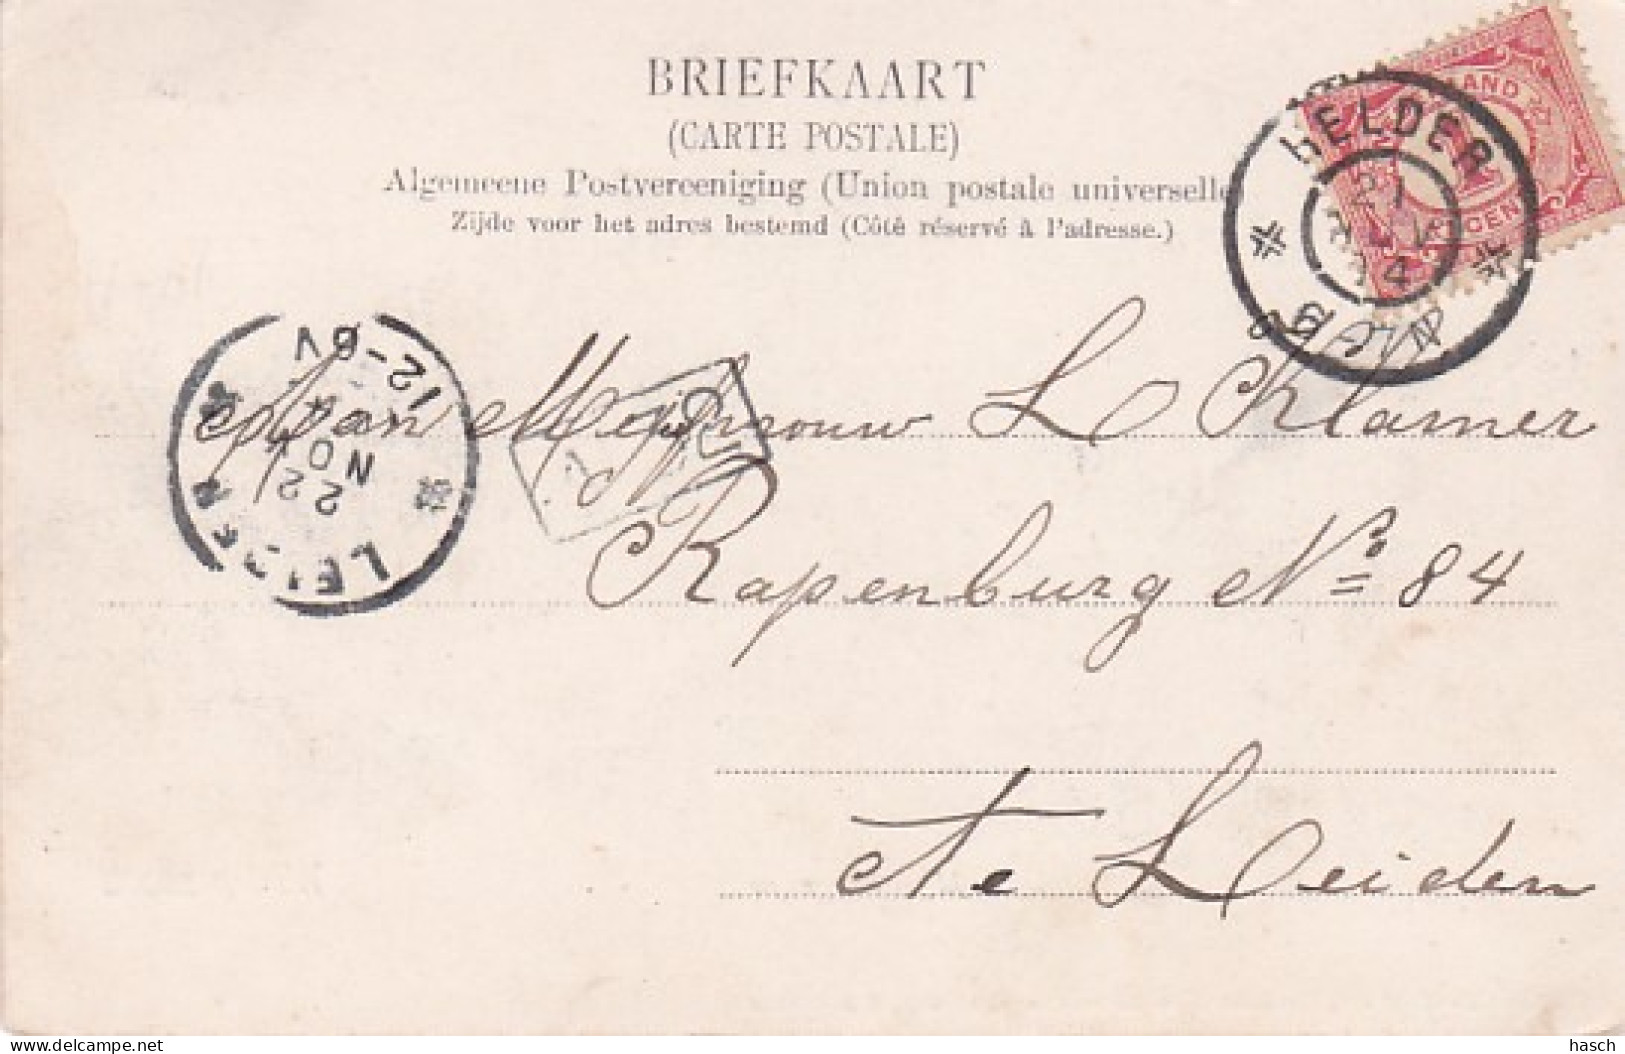 BRIEFKAART
(CARTE POSTALE)
Algemeene Postvereeniging (Union postale universelle
Zijde voor het adres bestemd (Côté réservé à l'adresse.)
HELDER
21
4
LAND
CENT
12-6V
22
NOV
LEIDEN
Aan Mejufrouw L Klamer
Rapenburg No 84
Te Leiden
hasch